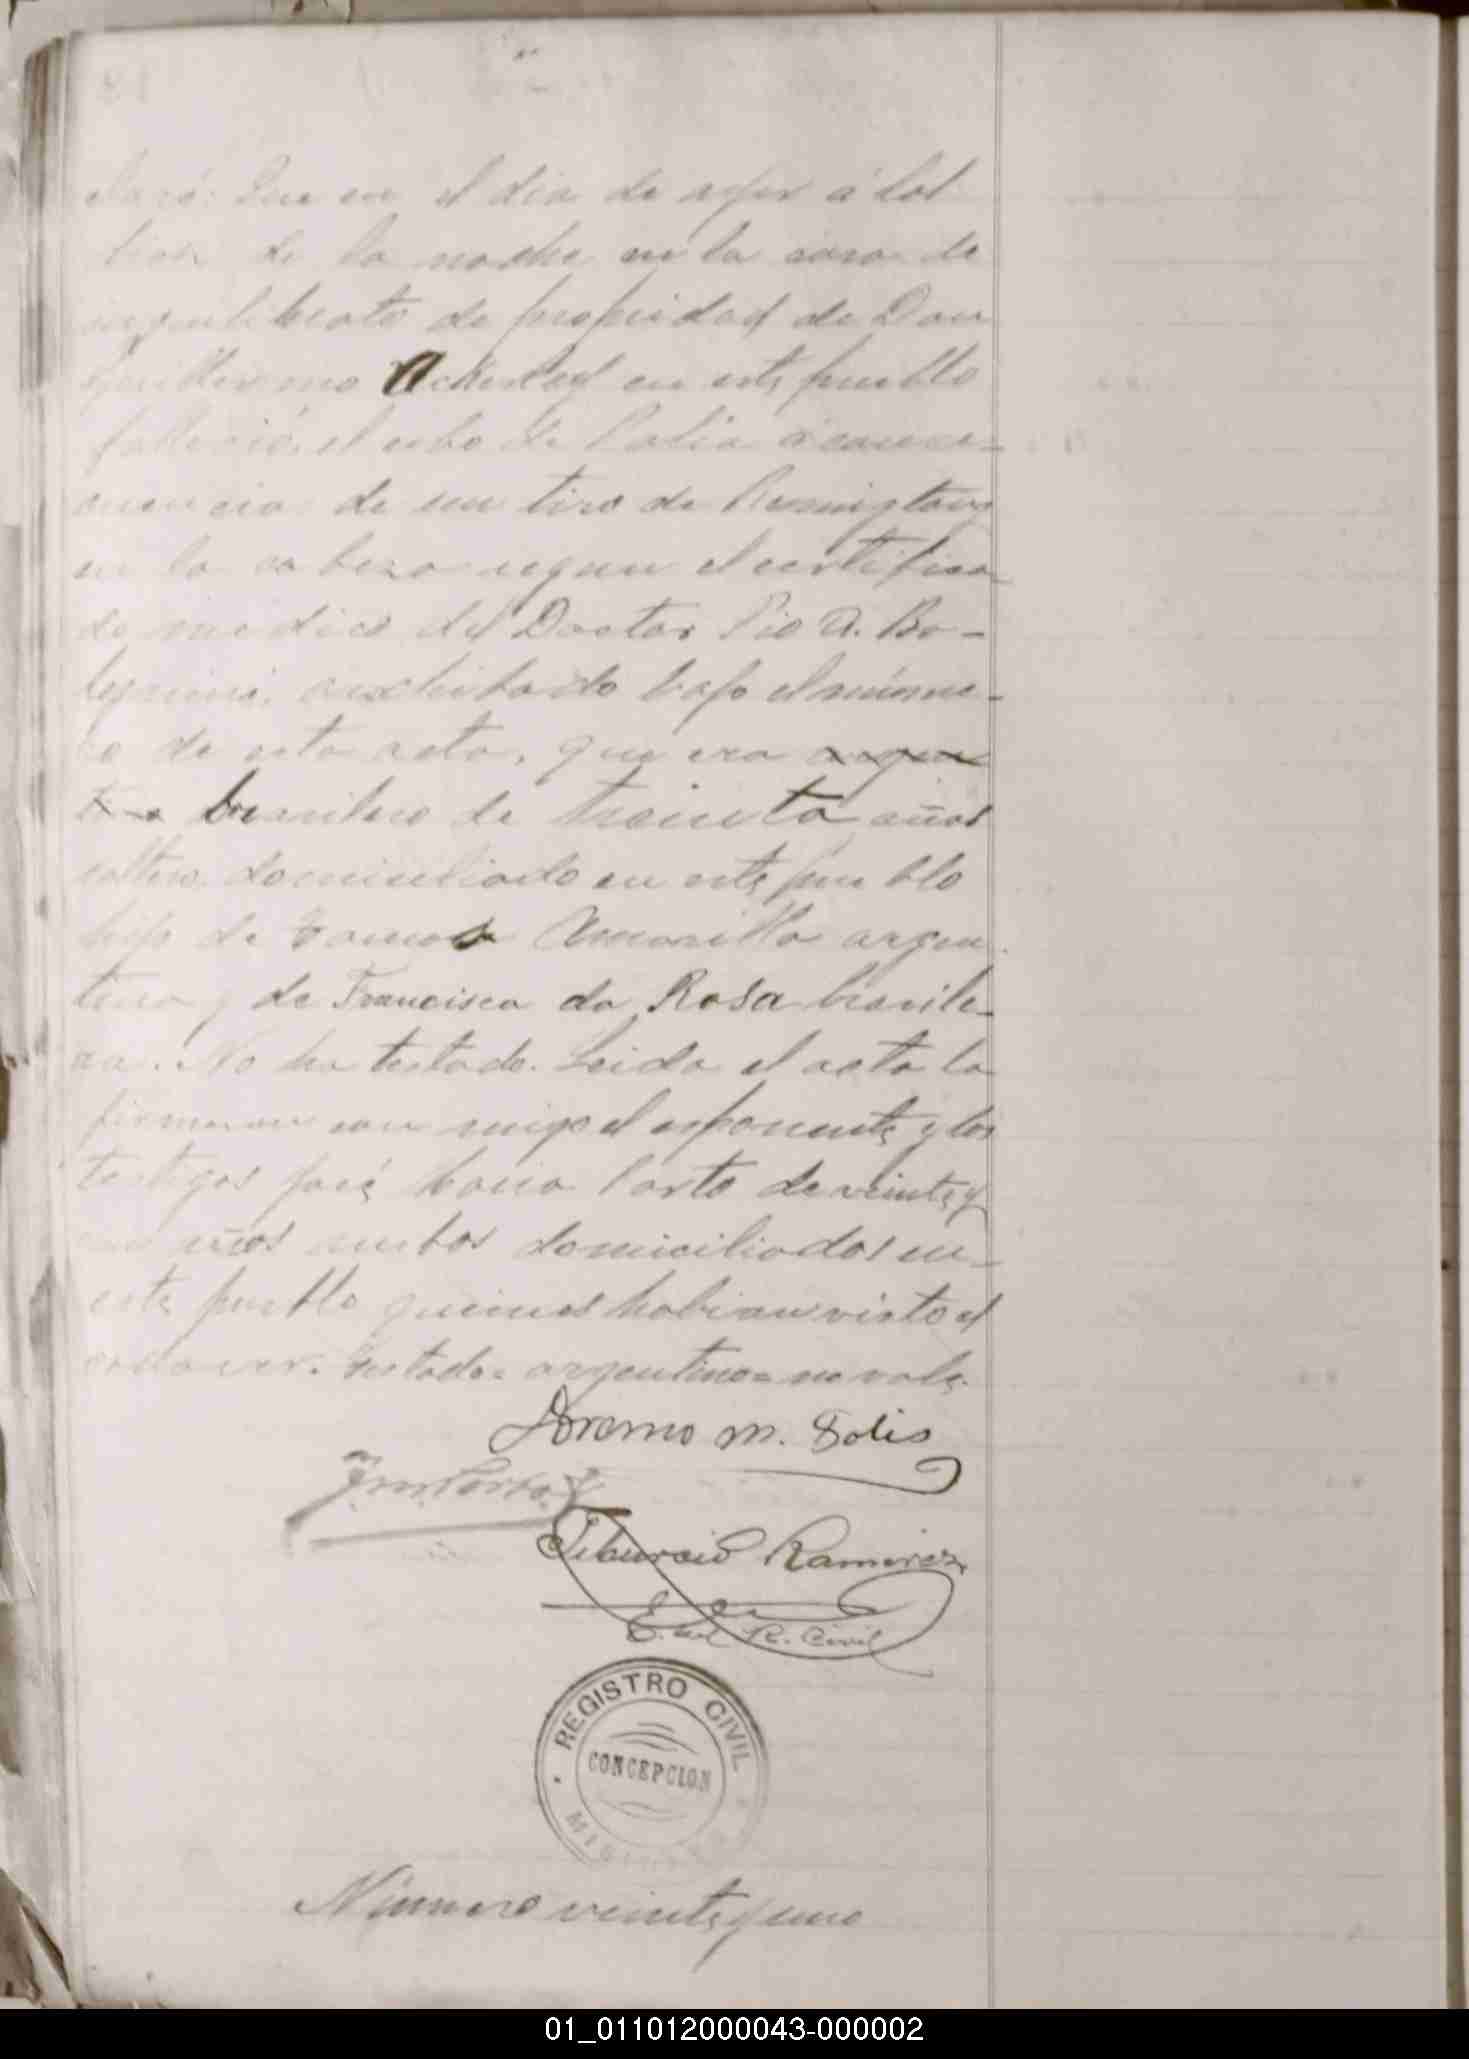 claró: Que en el dia de ayer á las
de la noche en la casa de
de propiedad de Don
Guillermo en este pueblo
falleció, el cabo de Policia á conse-
cuencia de un tiro de Remington
en la cabeza segun el certifica
do medico del Doctor Pio A. Bo-
archivado bajo el núme-
ro de esta acta, que era argen
tino brasilero de treinta años
soltero domiciliado en este pueblo
hijo de argen
tino y de Francisca da Rosa brasile-
ra. No ha testado. Leida el acta la
firmaron con migo el esponente y los
testigos José Porto de veinte y
años ambos domiciliados en
este pueblo quienes habian visto el
cadaver. Testado = argentino = no vale.
M. Solis
Tiburcio Ramirez
E. del R. Civil
REGISTRO CIVIL
CONCEPCION
Número veinte y uno
01_011012000043-000002